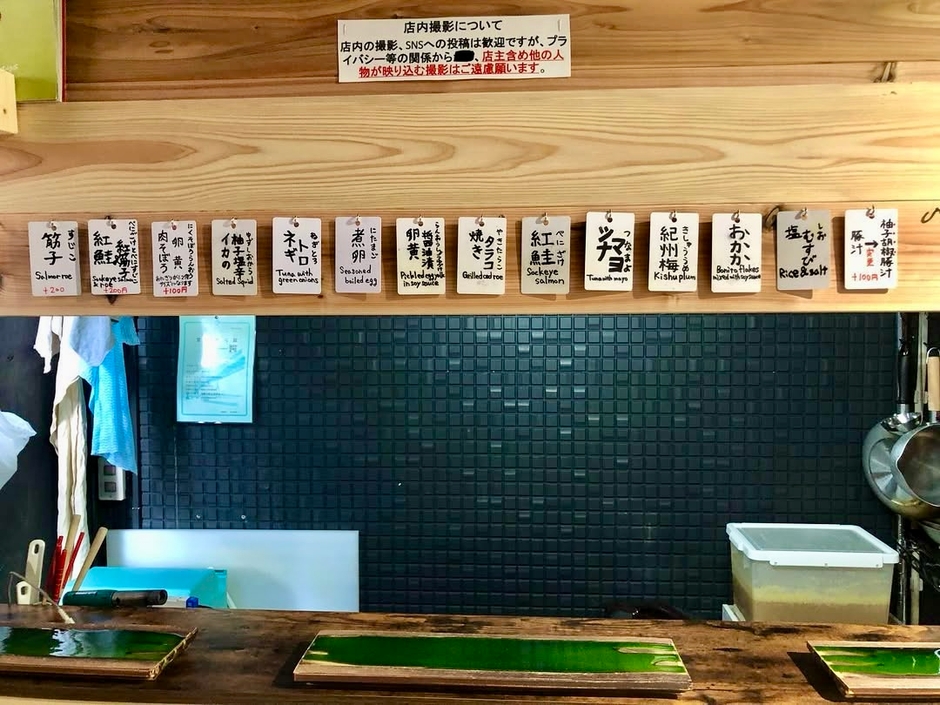 店内撮影について
店内の撮影、SNSへの投稿は歓迎ですが、プラ
イバシー等の関係から、店主含め他の人
物が映り込む撮影はご遠慮願います。
すじこ
筋子
Salmon roe
+200
べにざけべにすじこ
紅鮭
紅筋子
Sockeye salmon
& roe
+200円
にくそぼろらんおう
肉そぼろ
卵黄
+100円
ゆずしおから
柚子塩辛
イカの
Salted Squid
ねぎとろ
ネギ
トロ
Tuna with
green onions
にたまご
煮卵
Seasoned
boiled egg
醤油漬
卵黄
Pickled egg yolk
in soy sauce
やきたらこ
焼き
タラコ
Grilled cod roe
べにざけ
紅鮭
Sockeye
salmon
つなまよ
ツナ
マヨ
Tuna with mayo
きしゅううめ
紀州梅
Kishu plum
おかか
Bonito flakes
mixed with soy sauce
しお
塩むすび
Rice & salt
柚子胡椒豚汁
豚汁
→
変更
+100円